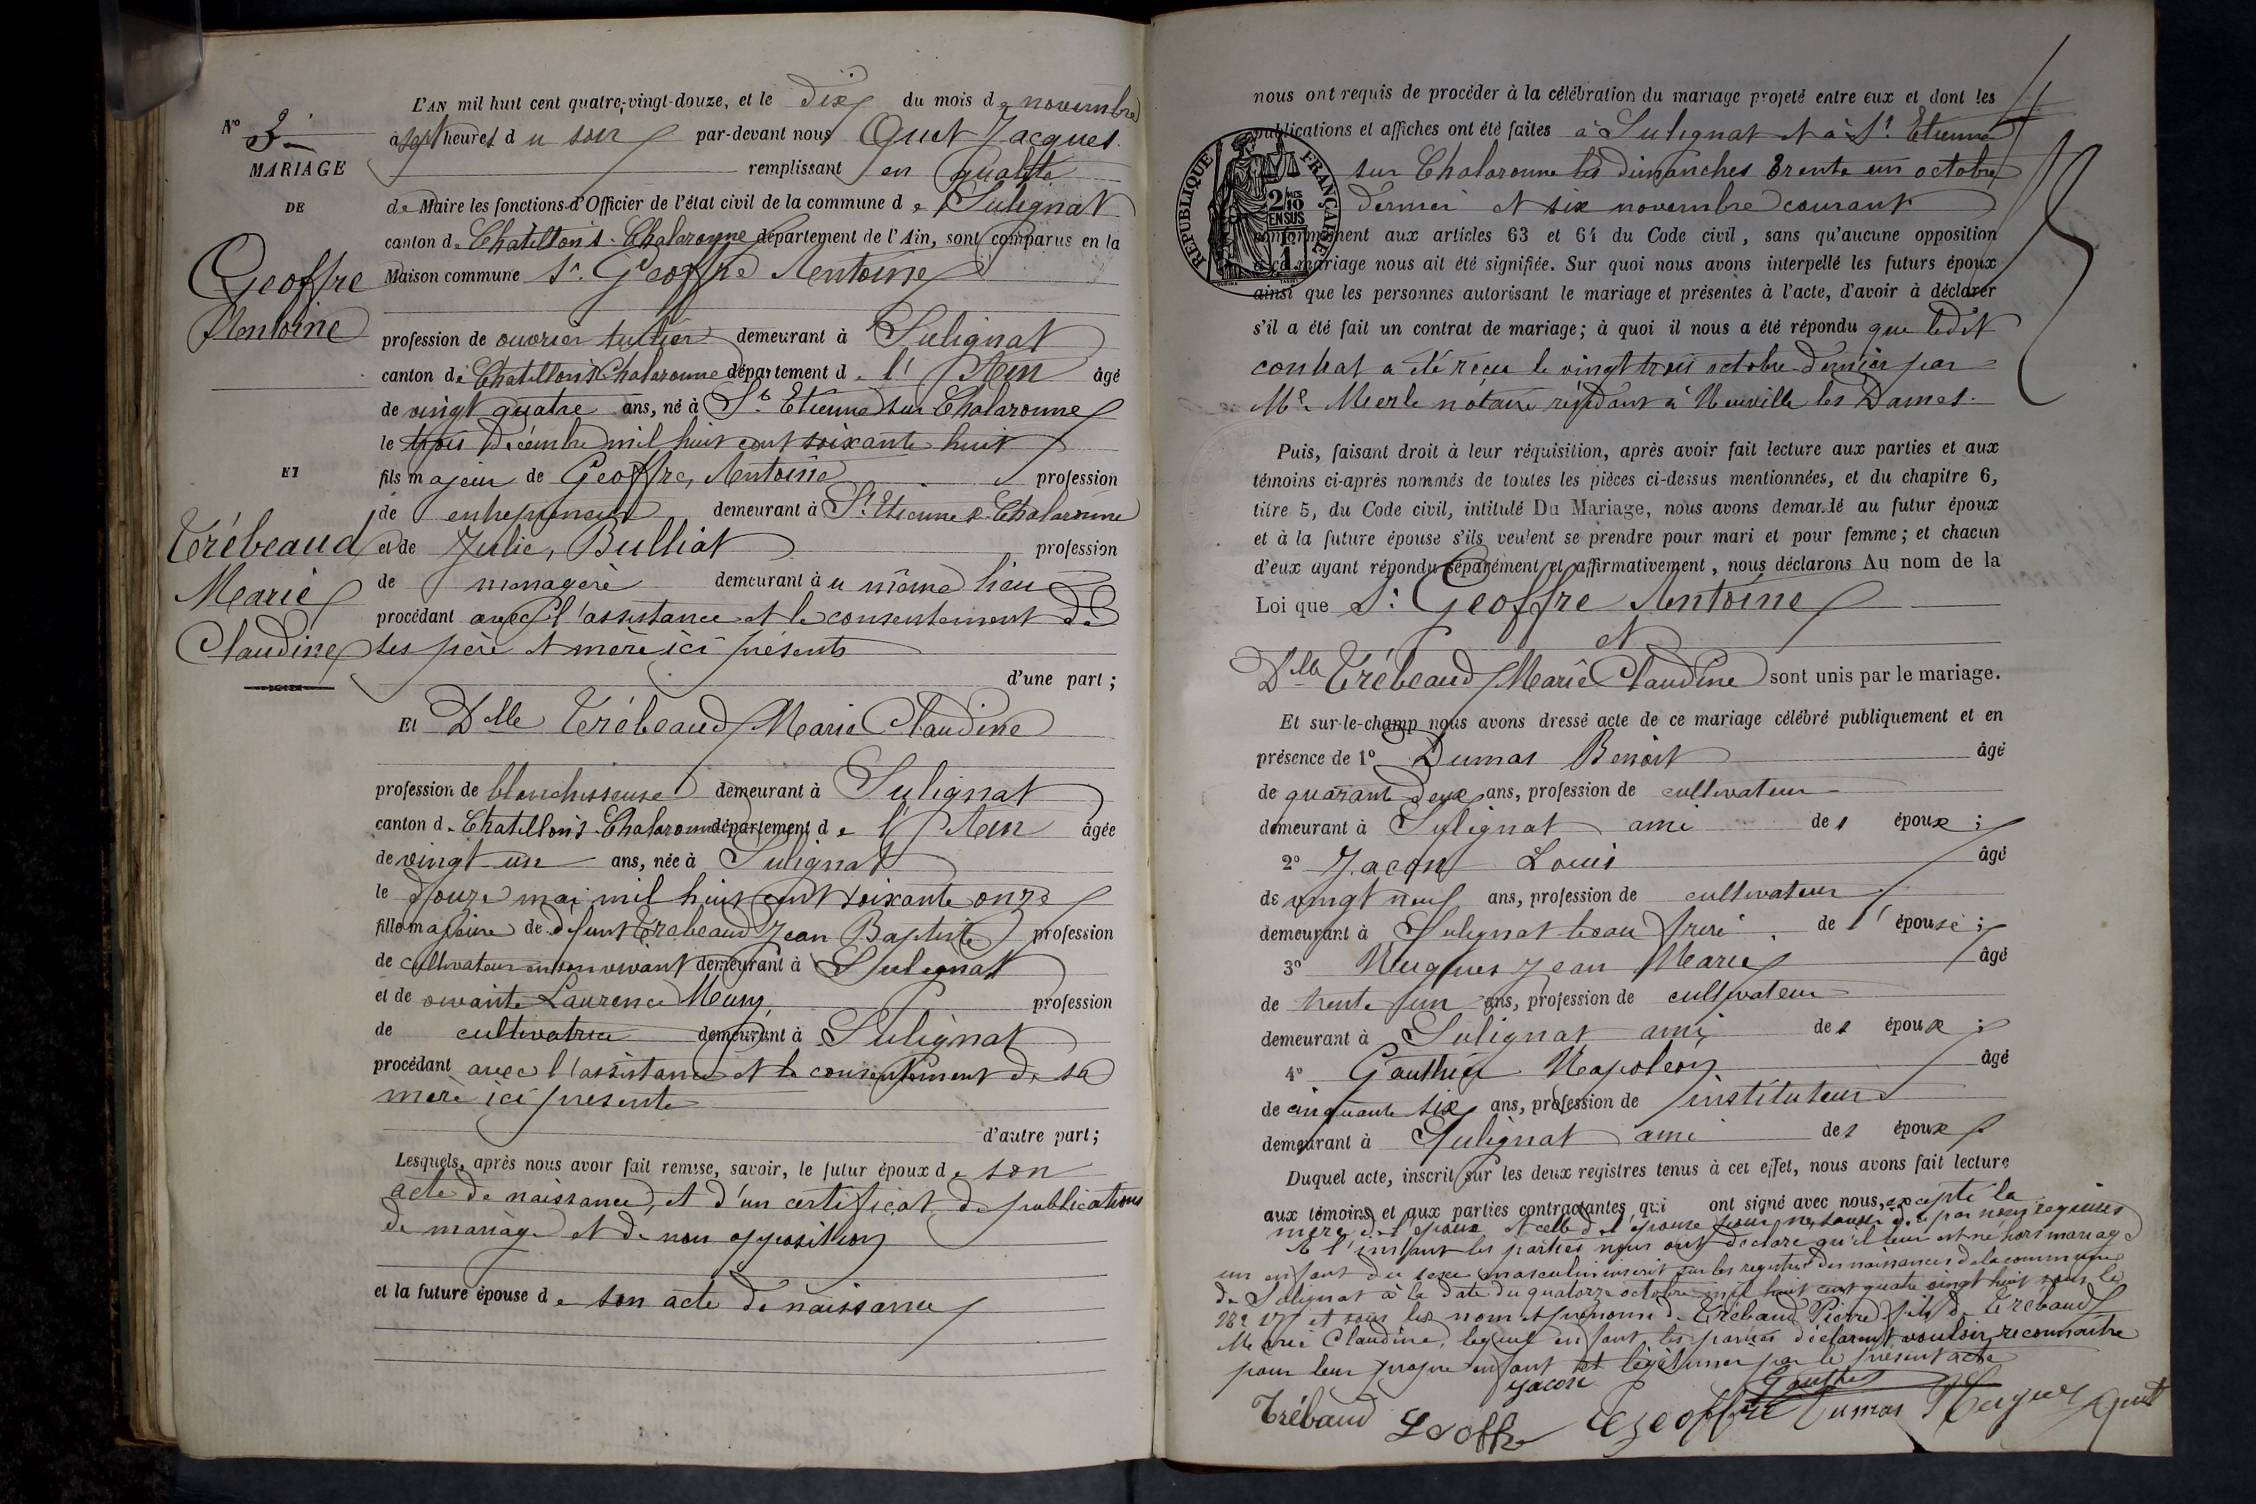 L'AN mil huit cent quatre-vingt-douze, et le dix du mois de novembre
N° 3
à sept heures du soir par-devant nous Quet Jacques
MARIAGE
remplissant en qualité
DE
de Maire les fonctions d'Officier de l'état civil de la commune de Sulignat
canton de Chatillon s. Chalaronne département de l'Ain, sont comparus en la
Geoffre
Maison commune Sr. Geoffre Antoine
Antoine
profession de ouvrier tuilier demeurant à Sulignat
canton de Chatillon s Chalaronne département de l'Ain âgé
de vingt quatre ans, né à St. Etienne sur Chalaronne
le trois décembre mil huit cent soixante huit
ET
fils majeur de Geoffre, Antoine profession
de entrepreneur demeurant à St. Etienne s. Chalaronne
Trébeaud
et de Julie, Bulliat profession
Marie
de menagère demeurant à u même lieu
procédant avec l'assistance et le consentement de
Claudine
ses père et mère ici présents
d'une part ;
Et Delle Trébeaud Marie Claudine
profession de blanchisseuse demeurant à Sulignat
canton de Chatillon s. Chalaronne département de l'Ain âgée
de vingt un ans, née à Sulignat
le douze mai mil huit cent soixante onze
fille majeure de défunt Trebeaud Jean Baptiste profession
de cultivateur en son vivant demeurant à Sulignat
et de vivante Laurence profession
de cultivatrice demeurant à Sulignat
procédant avec l'assistance et le consentement de sa
mère ici présente
d'autre part ;
Lesquels, après nous avoir fait remise, savoir, le futur époux de son
acte de naissance, et d'un certificat de publications
de mariage et de non opposition
et la future épouse de son acte de naissance
nous ont requis de procéder à la célébration du mariage projeté entre eux et dont les
publications et affiches ont été faites à Sulignat et à St. Etienne
sur Chalaronne les dimanches trente un octobre
dernier et six novembre courant
RÉPUBLIQUE FRANÇAISE
2/10 EN SUS
conformément aux articles 63 et 64 du Code civil, sans qu'aucune opposition
à ce mariage nous ait été signifiée. Sur quoi nous avons interpellé les futurs époux
ainsi que les personnes autorisant le mariage et présentes à l'acte, d'avoir à déclarer
s'il a été fait un contrat de mariage ; à quoi il nous a été répondu que ledit
contrat a été reçu le vingt trois octobre dernier par
Me. Merle notaire résidant à Neuville les Dames.
Puis, faisant droit à leur réquisition, après avoir fait lecture aux parties et aux
témoins ci-après nommés de toutes les pièces ci-dessus mentionnées, et du chapitre 6,
titre 5, du Code civil, intitulé Du Mariage, nous avons demandé au futur époux
et à la future épouse s'ils veulent se prendre pour mari et pour femme ; et chacun
d'eux ayant répondu séparément et affirmativement, nous déclarons Au nom de la
Loi que Sr. Geoffre Antoine
et
Delle Trébeaud Marie Claudine sont unis par le mariage.
Et sur-le-champ nous avons dressé acte de ce mariage célébré publiquement et en
présence de 1° Dumas Benoit âgé
de quarante deux ans, profession de cultivateur
demeurant à Sulignat ami des époux ;
2° Jacon Louis âgé
de vingt neuf ans, profession de cultivateur
demeurant à Sulignat beau frère de l'épouse ;
3° Hugues Jean Marie âgé
de trente un ans, profession de cultivateur
demeurant à Sulignat ami des époux ;
4° Gauthier Napoleon âgé
de cinquante six ans, profession de instituteur
demeurant à Sulignat ami des époux
Duquel acte, inscrit sur les deux registres tenus à cet effet, nous avons fait lecture
aux témoins et aux parties contractantes qui ont signé avec nous, excepté la
mère de l'époux et celle de l'épouse pour ne savoir de ce par nous requises
A l'instant les parties nous ont déclaré qu'il leur est né hors mariage
un enfant du sexe masculin inscrit sur les registres des naissances de la commune
de Sulignat à la date du quatorze octobre mil huit cent quatre vingt huit sous le
N° 17 et sous les nom et prénoms de Trébaud Pierre fils de Trébaud
Marie Claudine, lequel enfant, les parties déclarent vouloir reconnaître
pour leur propre enfant et légitimer par le présent acte
Jacon Gauthier
Trébaud Geoffre Geoffre Dumas Hugues Quet